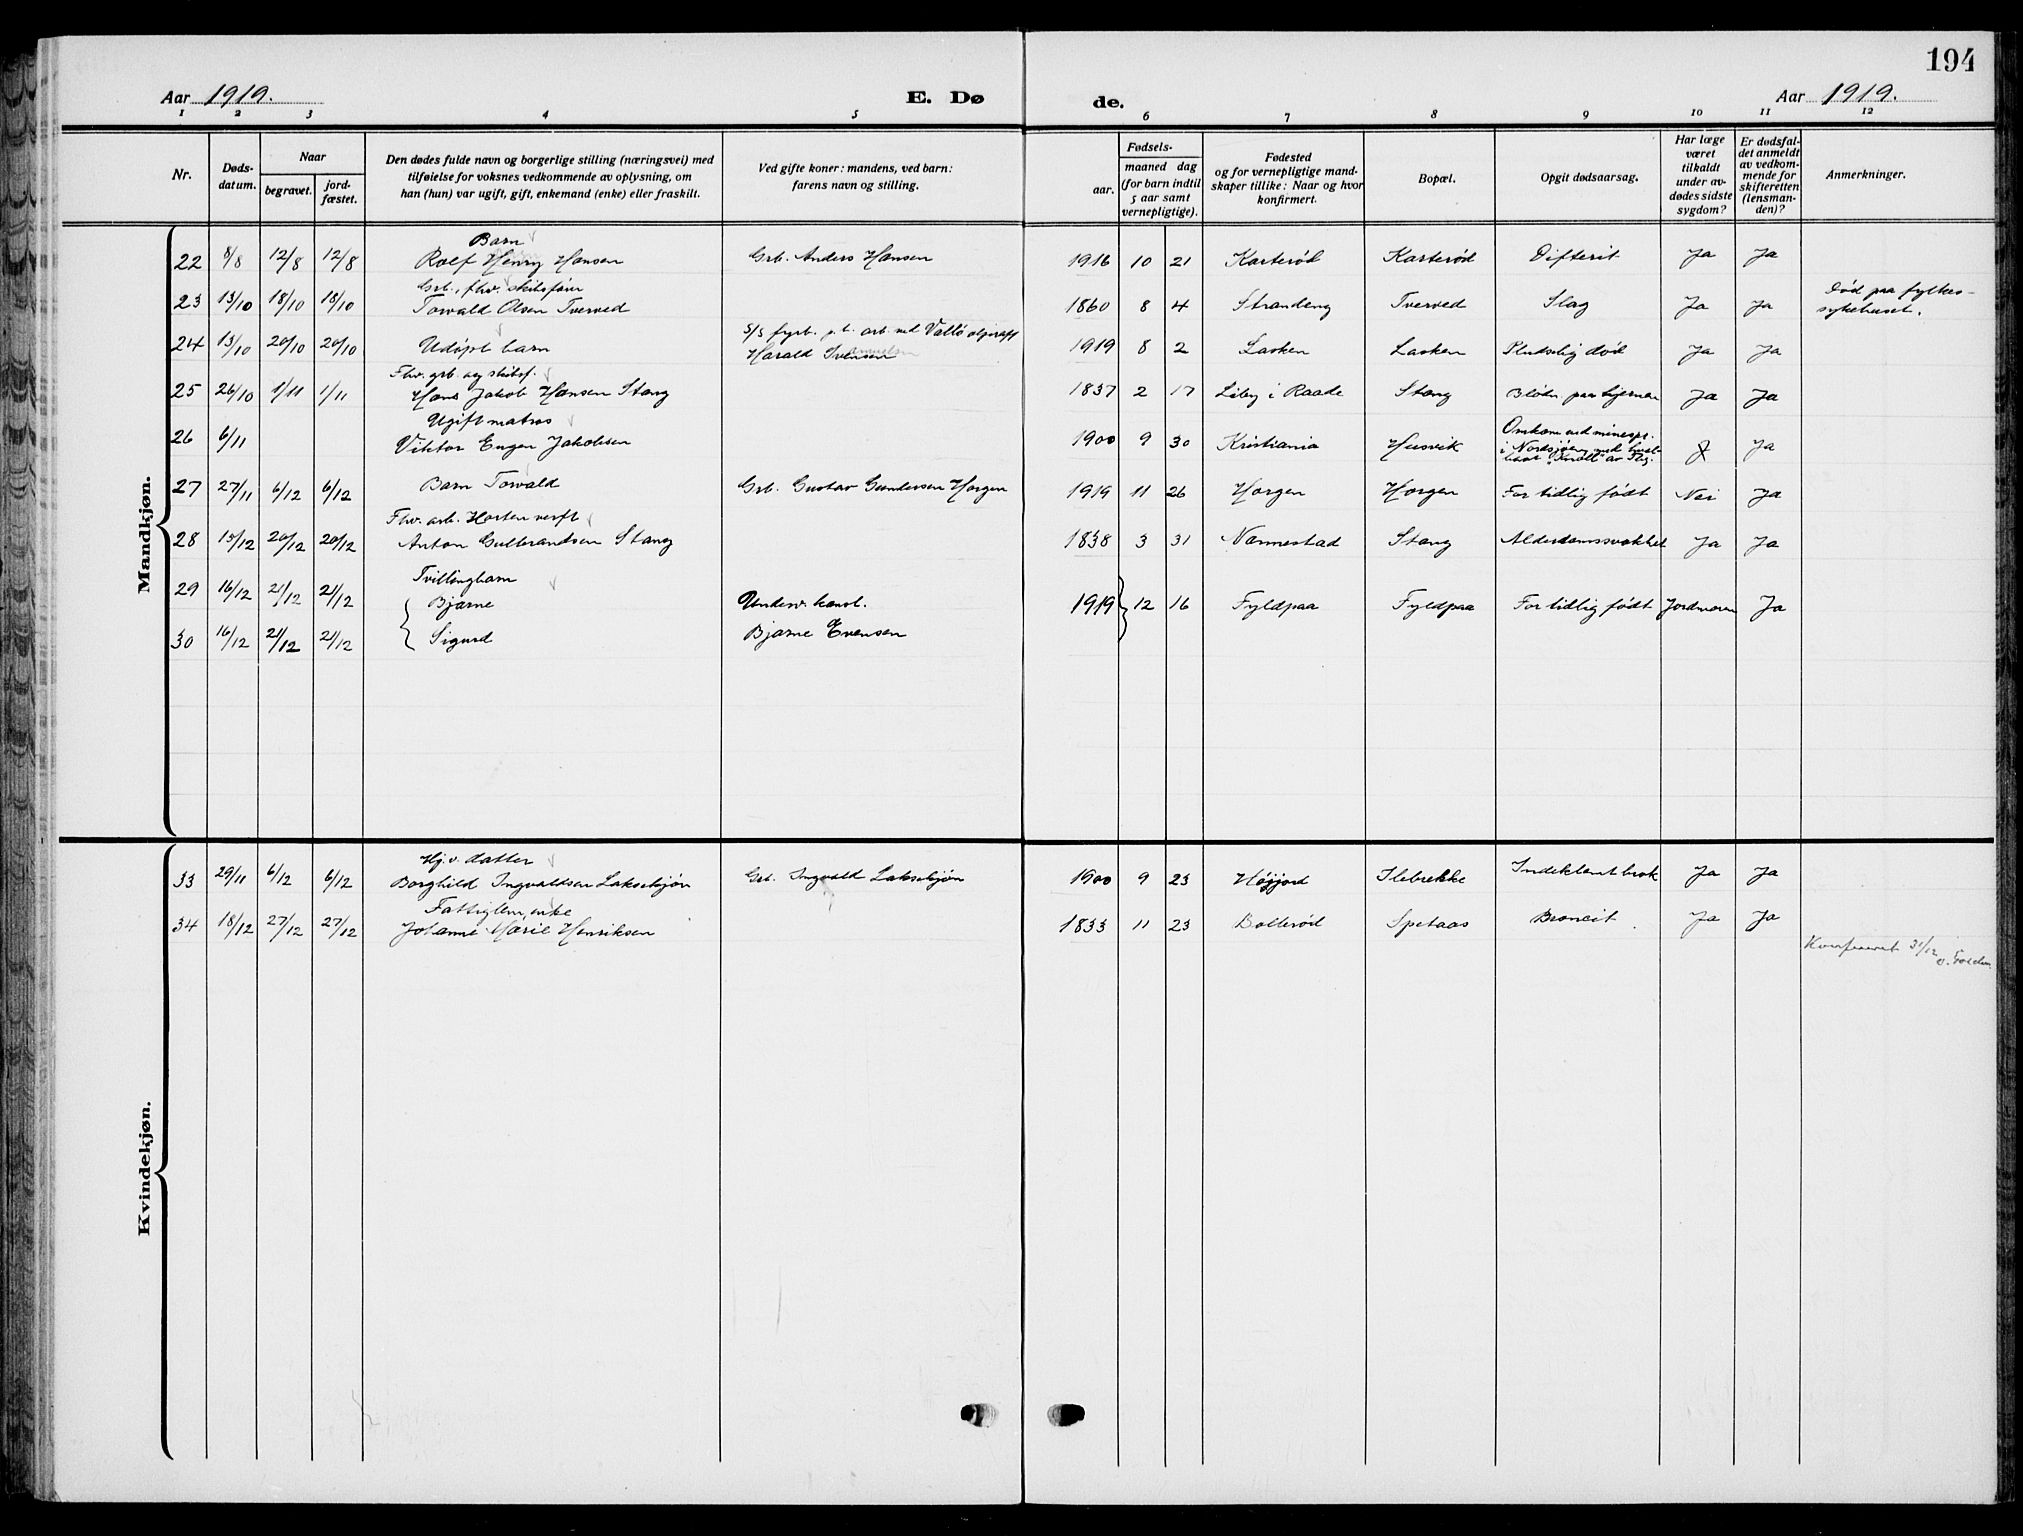 194
Aar 1919. E. Dø de. Aar 1919.
1 2 3 4 5 6 7 8 9 10 11 12
Nr. Døds-datum. Naar begravet. jord-fæstet. Den dødes fulde navn og borgerlige stilling (næringsvei) med tilføielse for voksnes vedkommende av oplysning, om han (hun) var ugift, gift, enkemand (enke) eller fraskilt. Ved gifte koner: mandens, ved barn: farens navn og stilling. Fødsels- aar. maaned dag (for barn indtil 5 aar samt vernepligtige). Fødested og for vernepligtige mandskaper tillike: Naar og hvor konfirmert. Bopæl. Opgit dødsaarsag. Har læge været tilkaldt under avdødes sidste sygdom? Er dødsfaldet anmeldt av vedkommende for skifteretten (lensmanden)? Anmerkninger.
Mandkjøn.
Barn
22 8/8 12/8 12/8 Rolf Henry Hansen Grb. Anders Hansen 1916 10 21 Karterød Karterød Difterit Ja Ja
Grb., fhv. skibsfører
23 13/10 18/10 18/10 Torvald Olsen Tverved 1860 8 4 Strandeng Tverved Slag Ja Ja Død paa fylkes-
sykehuset.
S/S fyrb. p.t. arb. ved Vallø oljeraff
24 13/10 20/10 20/10 Udøpt barn Harald Svensen 1919 8 2 Lasken Lasken Pludselig død Ja Ja
Fhv. grb. og skibsf.
25 26/10 1/11 1/11 Hans Jakob Hansen Stang 1837 2 17 Liby i Raade Stang Blødn. paa hjernen Ja Ja
Ugift matros
26 6/11 Viktor Eugen Jakobsen 1900 9 30 Kristiania Husvik Omkom ved minespr.
i Nordsjøen med "Knoll" av Tbg. Ja
27 27/11 6/12 6/12 Barn Torvald Grb. Gustav Gundersen Horgen 1919 11 26 Horgen Horgen For tidlig født Nei Ja
Fhv. arb. Horten verft
28 13/12 20/12 20/12 Anton Gulbrandsen Stang 1838 3 31 Nannestad Stang Alderdomssvakhet Ja Ja
Tvillingbarn
29 16/12 21/12 21/12 Bjarne Underv. konst. 1919 12 16 Fyldpaa Fyldpaa For tidlig født Jordmoren Ja
30 16/12 21/12 21/12 Sigurd Bjarne Evensen
Kvindekjøn.
Hj.v. datter
33 29/11 6/12 6/12 Borghild Ingvaldsen Laksekjøn Grb. Ingvald Laksekjøn 1900 9 23 Høijord Ilebrekke Indeklemt brok Ja Ja
Fattiglem, enke
34 18/12 27/12 27/12 Johanne Marie Henriksen 1833 11 23 Bollerød Spetaas Broncit. Ja Ja
Konfereret 31/12